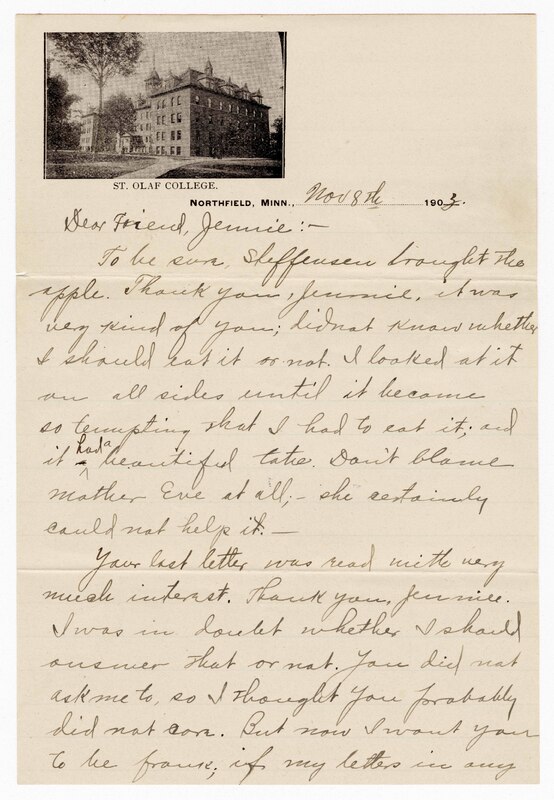 ST. OLAF COLLEGE.
NORTHFIELD, MINN., Nov 8th 1903.
Dear Friend, Jennie:-
To be sure, Steffensen brought the
apple. Thank you, Jennie, it was
very kind of you; did not know whether
I should eat it or not. I looked at it
on all sides until it became
so tempting that I had to eat it; and
it had a beautiful taste. Don't blame
mother Eve at all;- she certainly
could not help it.-
Your last letter was read with very
much interest. Thank you, Jennie.
I was in doubt whether I should
answer that or not. You did not
ask me to, so I thought you probably
did not care. But now I want you
to be frank; if my letters in any